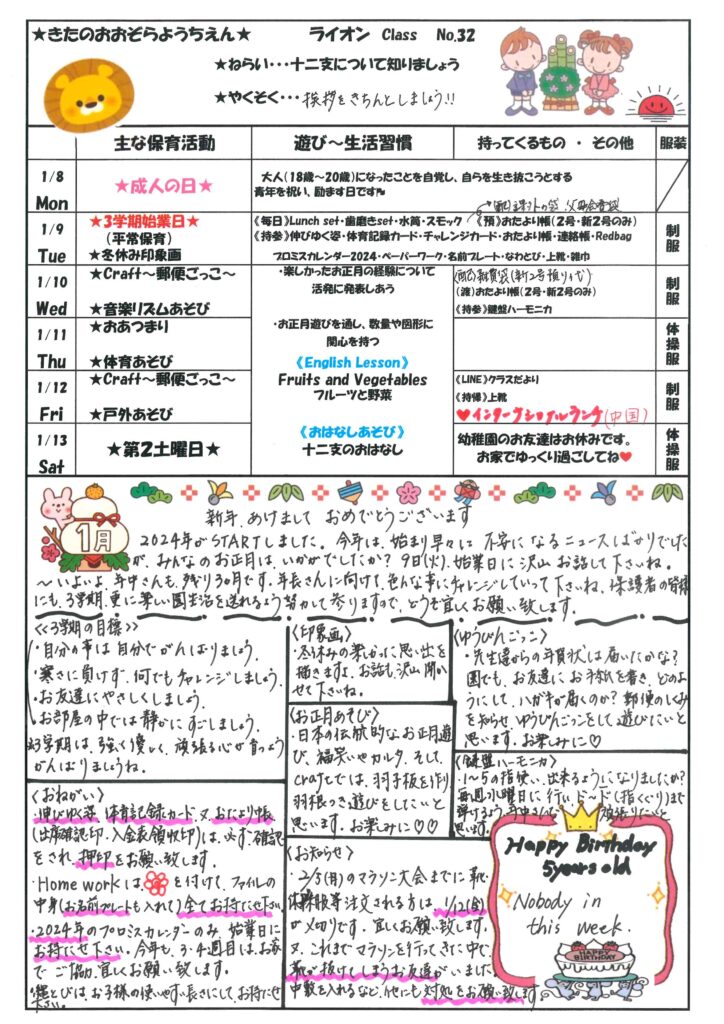 ★きたのおおぞらようちえん★ ライオン Class No.32
★ねらい・・・十二支について知りましょう
★やくそく・・・挨拶をきちんとしましょう!!
主な保育活動 遊び～生活習慣 持ってくるもの ・ その他 服装
1/8 Mon
★成人の日★
大人(18歳～20歳)になったことを自覚し、自らを生き抜こうとする
青年を祝い、励ます日です
1/9 Tue
★3学期始業日★
(平常保育)
★冬休み印象画
《毎日》Lunch set・歯磨きset・水筒・スモック 《預》おたより帳(2号・新2号のみ)
《持参》伸びゆく姿・体育記録カード・チャレンジカード・おたより帳・連絡帳・Redbag
プロミスカレンダー2024・ペーパーワーク・名前プレート・なわとび・上靴・雑巾
制服
1/10 Wed
★Craft～郵便ごっこ～
★音楽リズムあそび
・楽しかったお正月の経験について
活発に発表しあう
(渡)おたより帳(2号・新2号のみ)
《持参》鍵盤ハーモニカ
制服
1/11 Thu
★おあつまり
★体育あそび
・お正月遊びを通し、数量や図形に
関心を持つ
《English Lesson》
Fruits and Vegetables
フルーツと野菜
体操服
1/12 Fri
★Craft～郵便ごっこ～
★戸外あそび
《LINE》クラスだより
《持帰》上靴
♥インターナショナルランチ(中国)
制服
1/13 Sat
★第2土曜日★
《おはなしあそび》
十二支のおはなし
幼稚園のお友達はお休みです。
お家でゆっくり過ごしてね♥
体操服
1月
新年、あけまして おめでとうございます
2024年がSTARTしました。今年は、始まり早々に不安になるニュースばかりでした
が、みんなのお正月は、いかがでしたか? 9日(火)、始業日に沢山お話して下さいね。
～いよいよ、年中さんも、残り3ヶ月です。年長さんに向けて、色んな事にチャレンジしていって下さいね。保護者の皆様
にも、3学期、更に楽しい園生活を送れるよう努力して参りますので、どうぞ宜しくお願い致します。
<<3学期の目標>>
・自分の事は自分でがんばりましょう。
・寒さに負けず、何でもチャレンジしましょう。
・お友達にやさしくしましょう。
・お部屋の中では静かにすごしましょう。
3学期は、強く優しく、頑張る心が育つよう
がんばりましょうね。
<印象画>
・冬休みの楽しかった思い出を
描きますよ。お話も沢山聞か
せて下さいね。
<ゆうびんごっこ>
・先生達からの年賀状は届いたかな?
園でも、お友達に、お手紙を書き、どのよ
うにして、ハガキが届くのか? 郵便のしくみ
を知らせ、ゆうびんごっこをして遊びたいと
思います。お楽しみに♡
<お正月あそび>
・日本の伝統的なお正月遊
び、福笑いやカルタ、そして、
craftでは、羽子板を作り、
羽根つき遊びをしたいと
思います。お楽しみに♡♡
<鍵盤ハーモニカ>
・1～5の指使い、出来るようになりましたか?
毎週水曜日に行い、ド～ド(指くぐり)まで
弾けるよう
思います。
<おねがい>
・伸びゆく姿、体育記録カード、又、おたより帳
(出席確認印、入金表領収印)は、必ず、確認
をされ、押印をお願い致します。
・Home workは を付けて、ファイルの
中身(お名前プレートも入れて)全てお持たせ下さい。
・2024年のプロミスカレンダーのみ、始業日に
お持たせ下さい。今年も、3・4週目は、お家
で ご協力、宜しくお願い致します。
・縄とびは、お子様の使いやすい長さにして、お持たせ
下さい。
<お知らせ>
・2/5(月)のマラソン大会までに、靴、
体操服等注文される方は、1/12(金)
が〆切りです。宜しくお願い致します。
又、これまでマラソンを行ってきた中で、
靴が抜けてしまうお友達がいました。
中敷を入れるなど、他にも対処をお願い致します。
Happy Birthday
5years old
Nobody in
this week.
HAPPY
BIRTHDAY